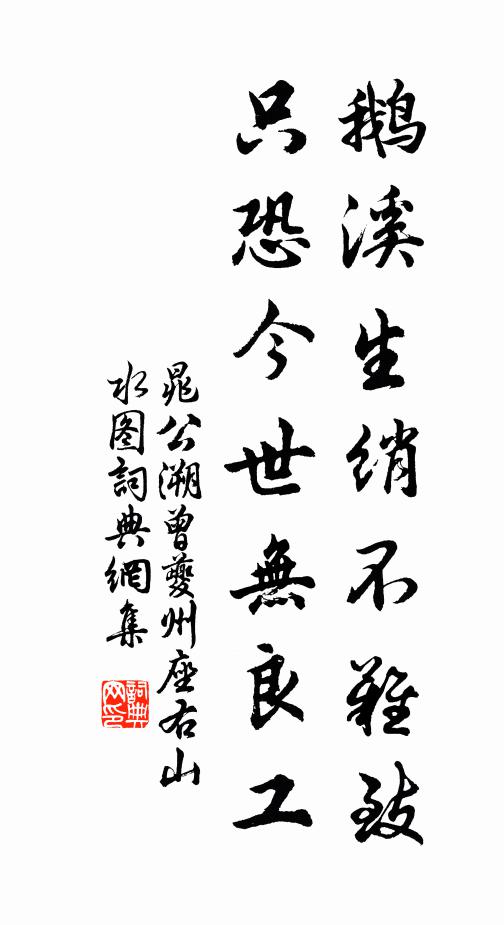 鹅溪生绡不難致
只恐今世無良工
晁公溯曾夔州座右山
水图詞典網集
詞典
网印